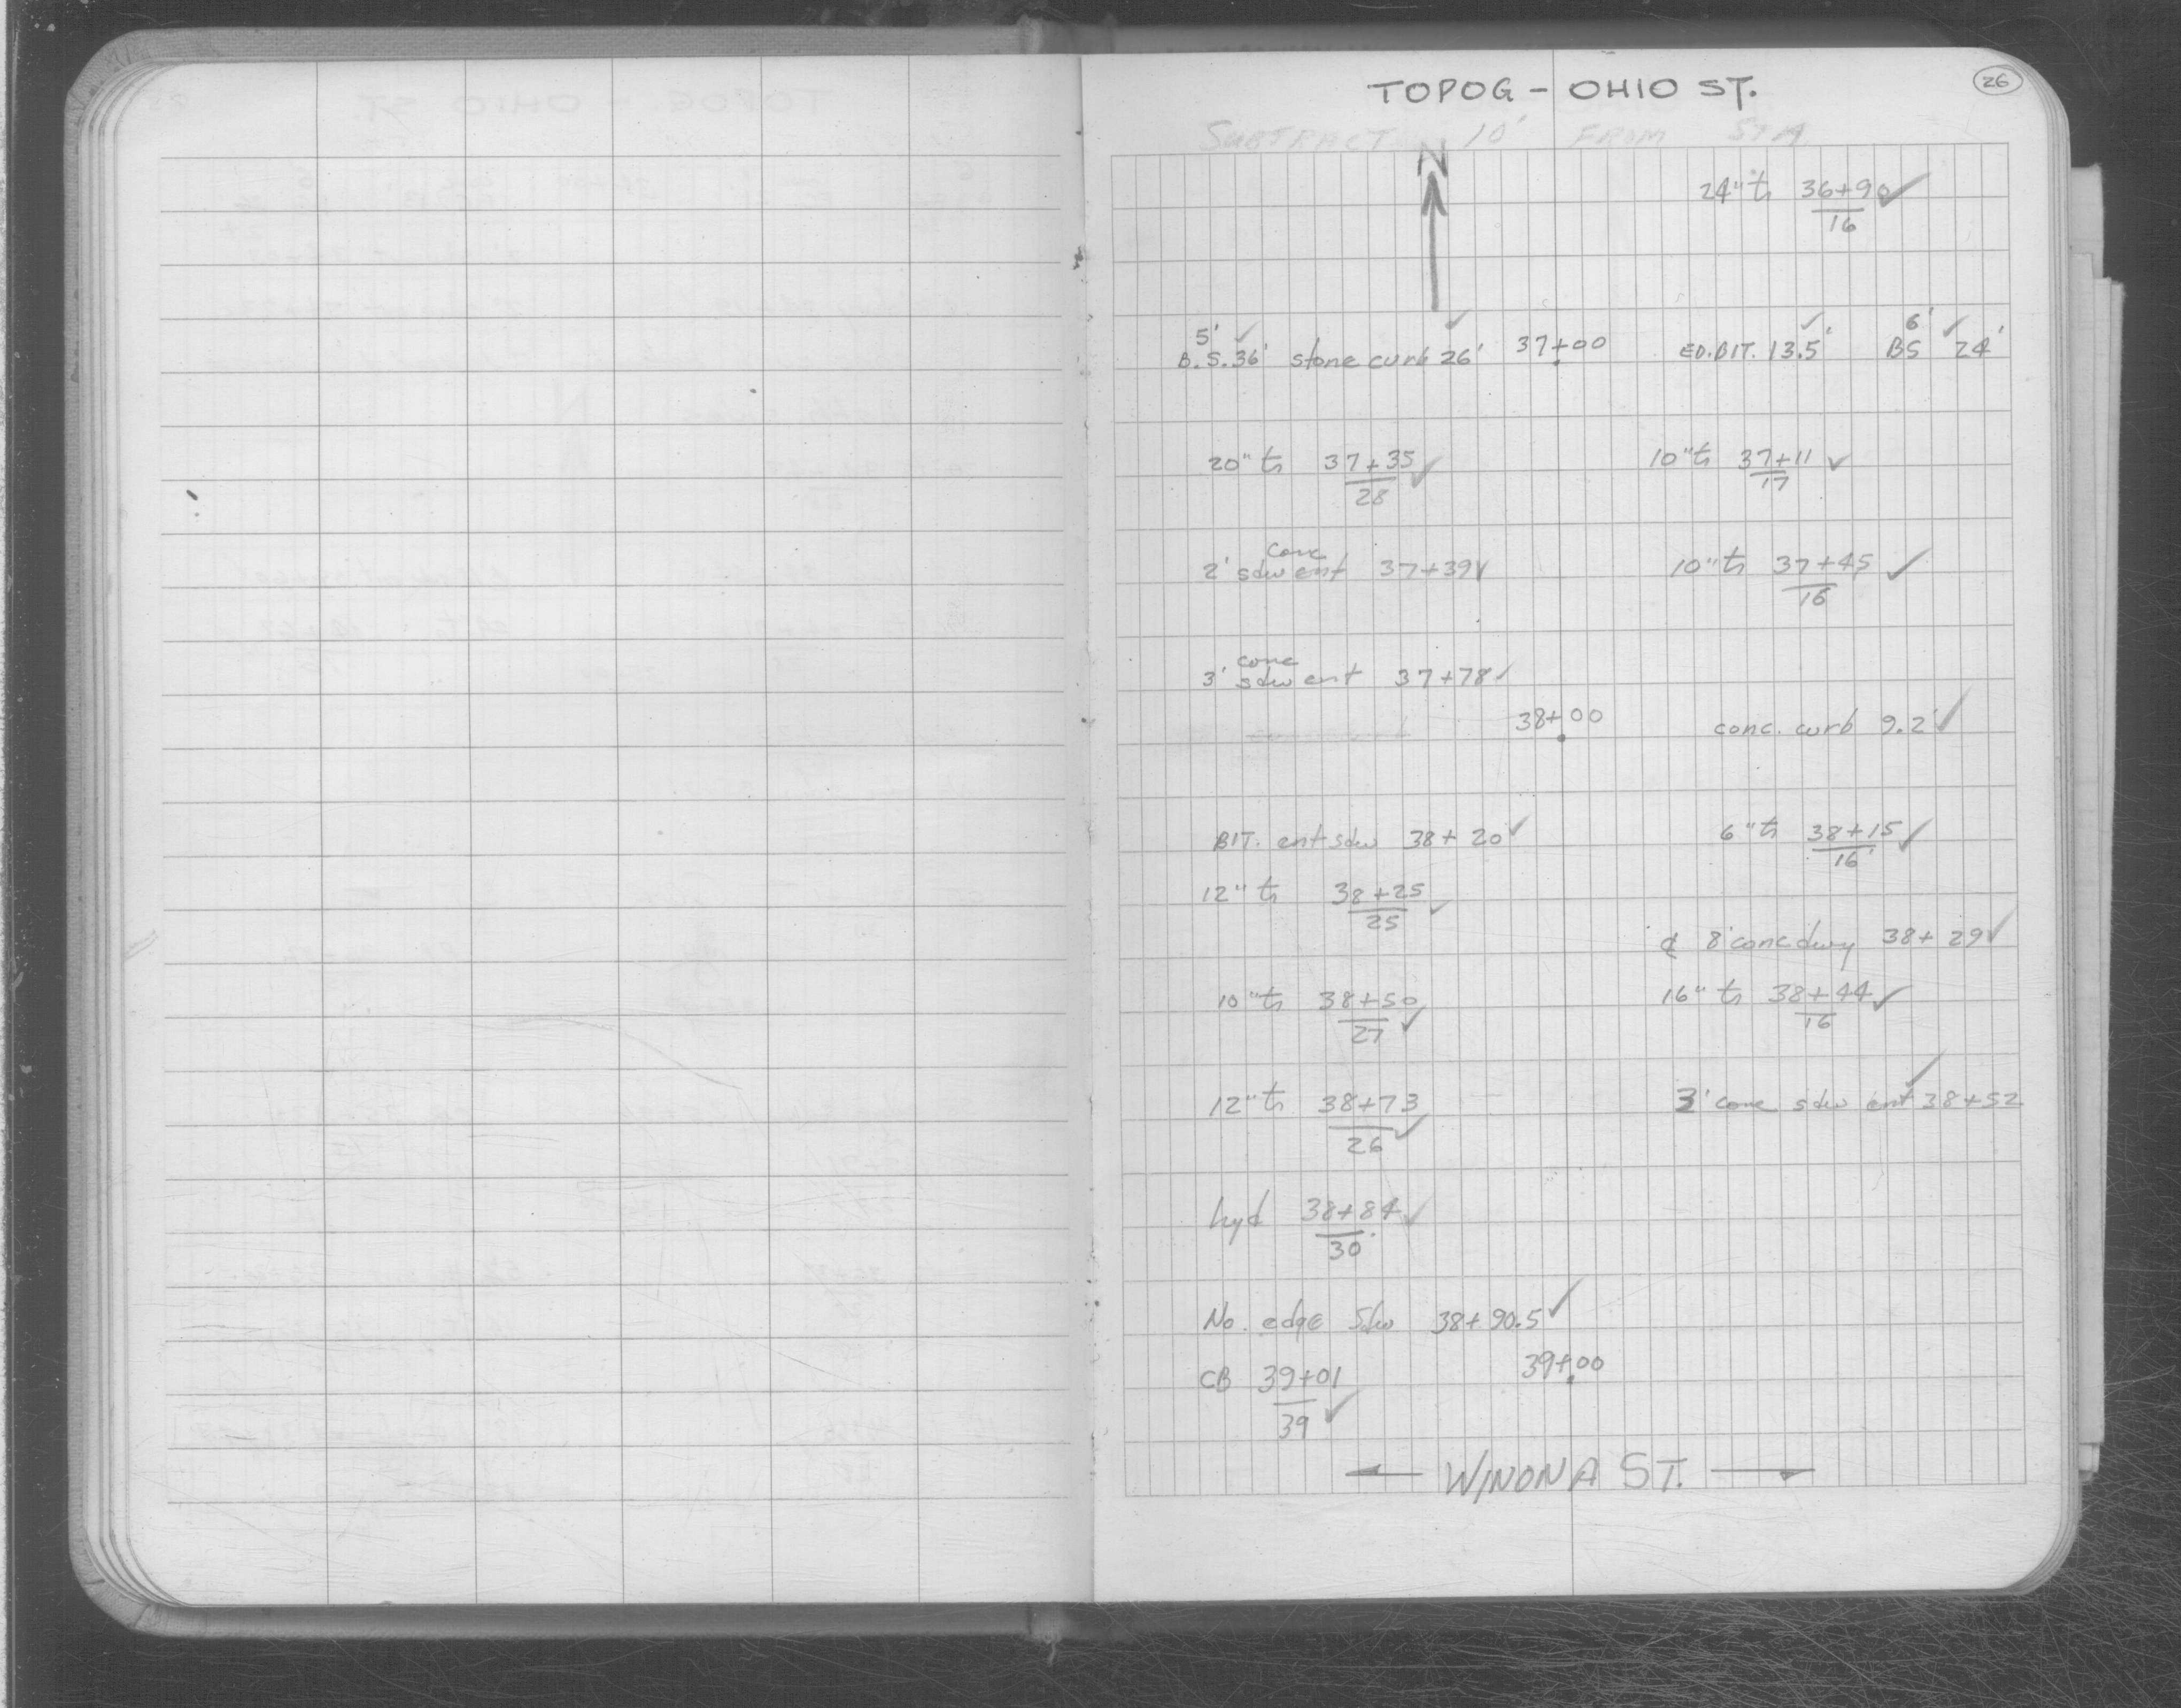 TOPOG - OHIO ST.
26
SUBTRACT 10' FROM STA
N
24" tr 36+90 ✓
16
5' ✓ ✓ ✓ 6' ✓
B.S. 36' stone curb 26' 37+00 ED. BIT. 13.5' BS 24'
20" tr 37+35 ✓ 10" tr 37+11 ✓
28 17
conc
2' sdw ent 37+39 ✓ 10" tr 37+45 ✓
16
conc
3' sdw ent 37+78 ✓
38+00 conc. curb 9.2' ✓
BIT. ent sdw 38+20 ✓ 6" tr 38+15 ✓
16
12" tr 38+25 ✓
25
¢ 8' conc dwy 38+29 ✓
10" tr 38+50 ✓ 16" tr 38+44 ✓
27 16
12" tr 38+73 ✓ 3' conc sdw ent 38+52 ✓
26
hyd 38+84 ✓
30
No. edge Sdw 38+90.5 ✓
CB 39+01 39+00
39 ✓
← WINONA ST. →